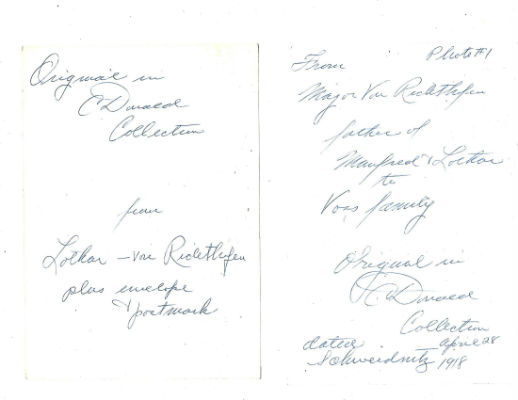 Original in
C Donald
Collection
from
Lothar - von Richthofen
plus envelope
& postmark
From Photo #1
Major Von Richthofen
father of
Manfred & Lothar
to
Voss family
Original in
C Donald
Collection
dated April 28
Schweidnitz 1918